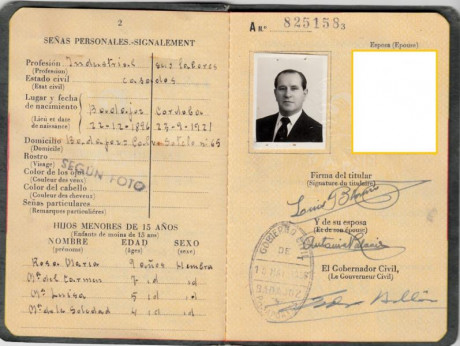 2
SEÑAS PERSONALES.-SIGNALEMENT
Profesión Industrial sus labores
(Profession)
Estado civil casados
(Etat civil)
Lugar y fecha
de nacimiento Badajoz Cordoba
(Lieu et date de
naissance)
Domicilio Badajoz Calvo Sotelo nº 65
(Domicile)
Rostro
(Visage)
Color de los ojos
(Couleur des yeux)
Color del cabello
(Couleur des cheveux)
Señas particulares
(Remarques particulières)
SEGÚN FOTO
HIJOS MENORES DE 15 AÑOS
(Enfants de moins de 15 ans)
NOMBRE EDAD SEXO
(prénoms) (âges) (sexe)
Rosa Maria 9 años Hembra
Mª del Carmen 7 id id
Mª Luisa id id
Mª de la Soledad 4 id id
A Nº 825158 3
Esposa (Epouse)
Firma del titular
(Signature du titulaire)
Y de su esposa
(Et de son épouse)
El Gobernador Civil,
(Le Gouverneur Civil)
GOBIERNO CIVIL
DE
BADAJOZ